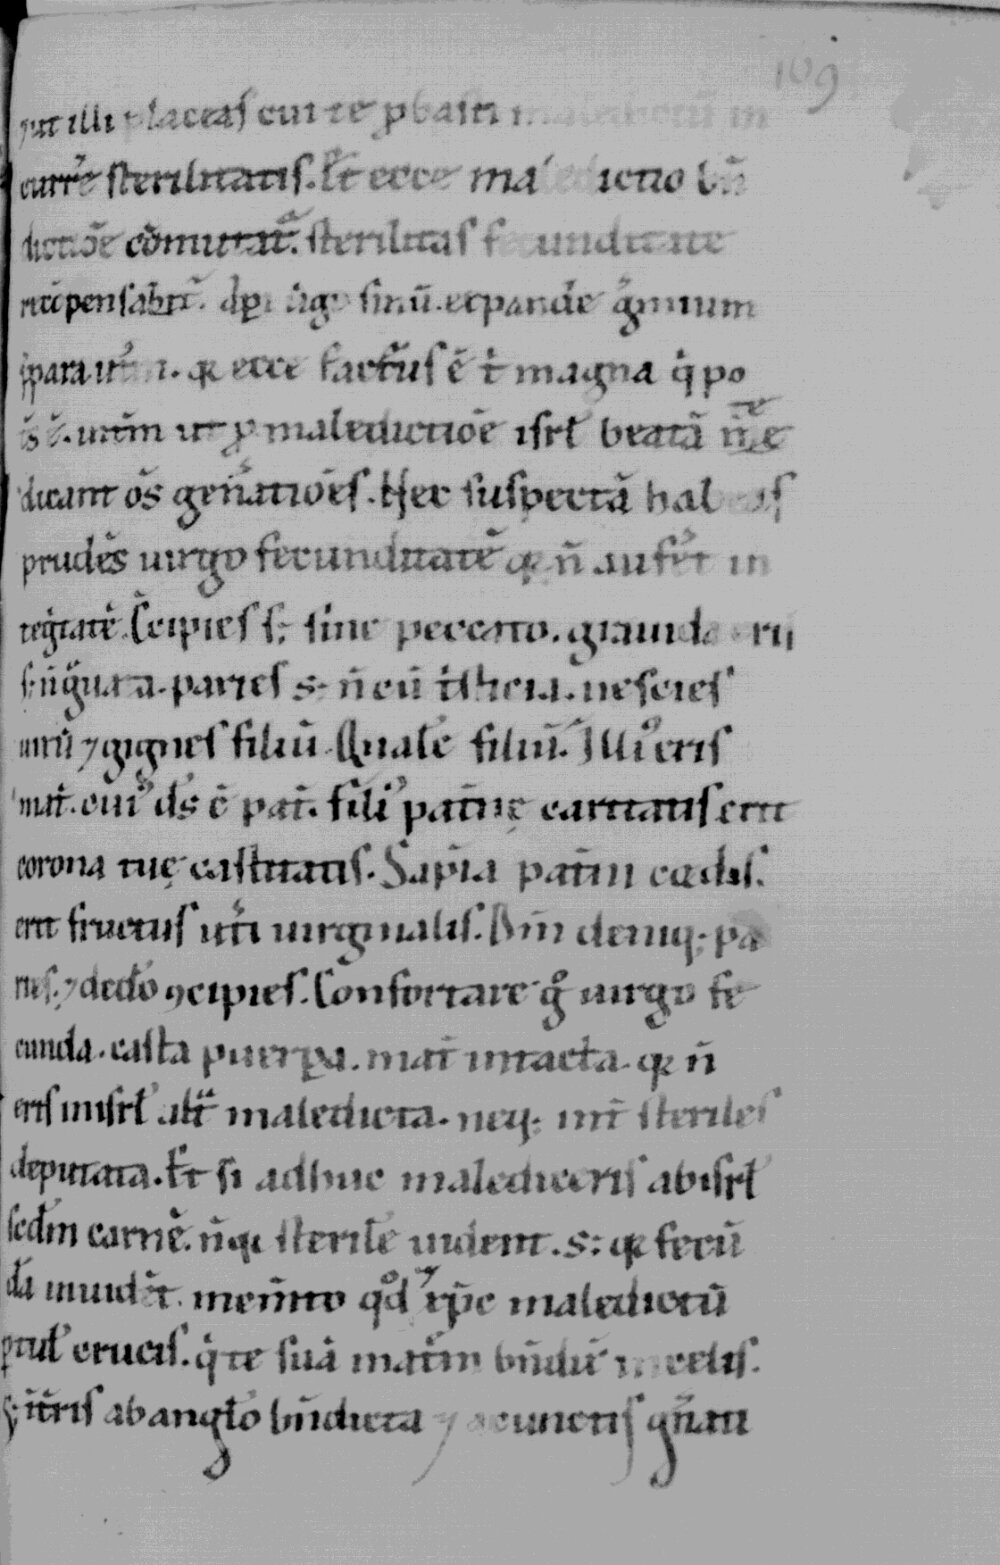 109
⁊ ut illi placeas cui te ꝓbasti maledictū in
curr̄e sterilitatis. Et ecce maledictio bn̄
dictiōe cōmutat᷑. sterilitas fecunditate
recōpensabit᷑. Apͥ uͥgo sinū. expande gͥmium
ꝑpara utm̄. qꝛ ecce factur̄s ē tͥ magna qͥ po
tēs ē. intm̄ ut ꝓ maledictiōe isrł beatā te
dicant om̄s gen̄atiōes. Nec suspectā habeas
prudēs uirgo fecunditatē qꝛ n̄ aufert in
tegͥtatē. Cͦcipies s; sine peccato. grauida eris
s; n̄ gͣuata. paries s; n̄ cū tͥsticia. nescies
uirū ⁊ gignes filiū. Qualē filiū. Illiꝰ eris
mat̄. cuiꝰ ds̄ ē pat̄. filiꝰ pat̄nę caritatis erit
corona tuę castitatis. Sapīa pat̄ni cordis.
erit fructus ut̄i uirginalis. Dm̄ deniq; pa
ries. ⁊ de do ꝯcipies. Confortare gͦ uirgo fe
cunda. casta puerꝑa. mat̄ intacta. qꝛ n̄
eris in isrł ult̄ maledicta. neq; int̄ steriles
deputata. Et si adhuc malediceris ab isrł
scd̄m carnē. n̄ qꝛ sterilē uident. s; qꝛ fecū
dā inuidēt. mem̄to qd̄ ⁊ xp̄c maledictū
ptuł crucis. qͥ te suā matrē bn̄dix̄ in celis.
s; ⁊ in t̄ris ab angło bn̄dicta ⁊ a cunctis gn̄ati